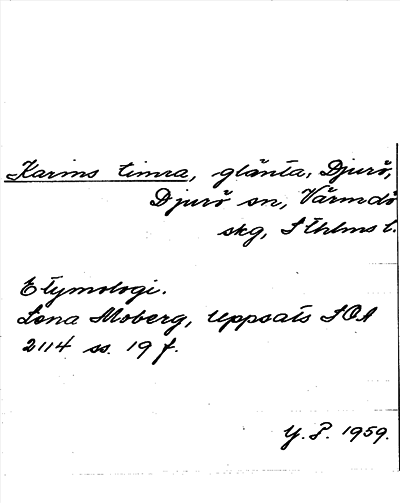 Karins timra, glänta, Djurö,
Djurö sn, Värmdö
skg, Sthlms l.
Etymologi.
Lena Moberg, Uppsats SOA
2114 ss. 19 f.
Y. P. 1959.